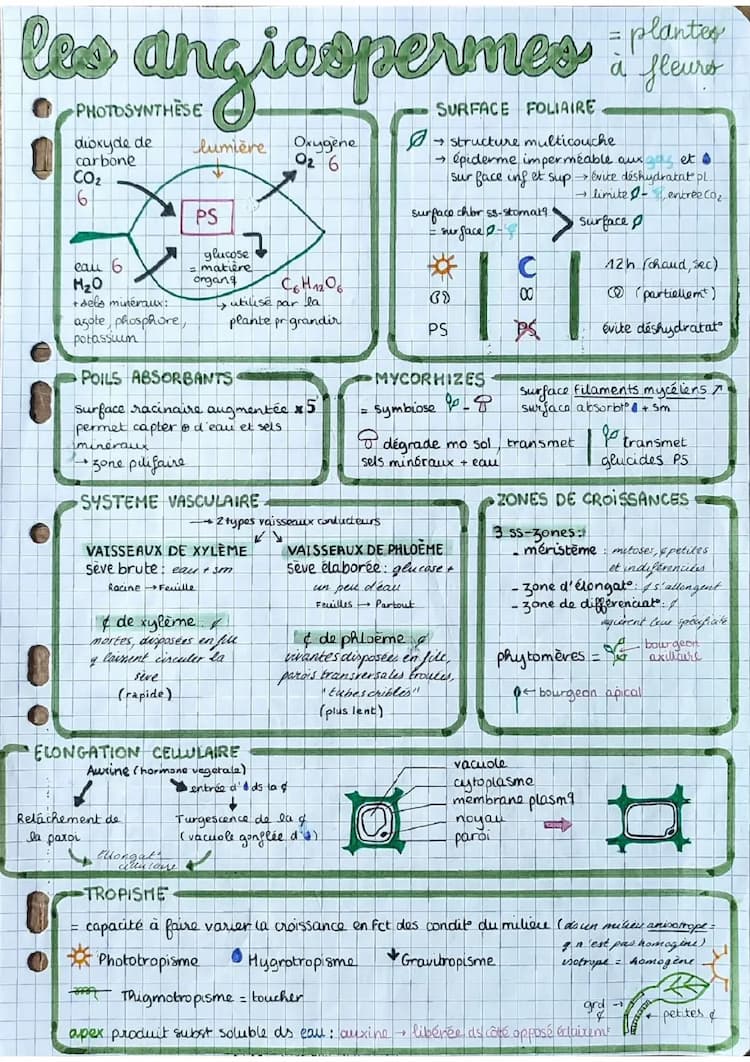 les angiospermes
= plantes
à fleurs
PHOTOSYNTHÈSE
dioxyde de
carbone
CO₂
6
lumière
Oxygène
O₂ 6
PS
eau 6
H₂O
+ sels minéraux:
azote, phosphore,
potassium
glucose
= matière
organq
C₆H₁₂O₆
→ utilisé par la
plante pr grandir
SURFACE FOLIAIRE
→ structure multicouche
→ épiderme imperméable aux gas et
surface inf et sup → évite déshydratat° pl
→ limite , entrée CO₂
surface chlor ss-stomatq
= surface
> surface
12h (chaud, sec)
(partiellemt)
PS
PS
évite déshydratat°
POILS ABSORBANTS
surface racinaire augmentée x5
permet capter ⊕ d'eau et sels
minéraux
→ zone pilifaire
MYCORHIZES
= symbiose
surface filaments mycéliens ↗
surface absorbt° + sm
dégrade mo sol, transmet
sels minéraux + eau
transmet
glucides PS
SYSTEME VASCULAIRE
→ 2 types vaisseaux conducteurs
VAISSEAUX DE XYLÈME
sève brute: eau + sm
Racine → Feuille
¢ de xylème: ¢
mortes, disposées en file
q laissent circuler la
sève
(rapide)
VAISSEAUX DE PHLOÈME
sève élaborée: glucose +
un peu d'eau
Feuilles → Partout
¢ de phloème: ¢
vivantes disposées en file,
parois transversales trouées,
"tubes criblés"
(plus lent)
ZONES DE CROISSANCES
3 ss-zones:
- méristème: mitoses, ¢ petites
et indifférenciées
- zone d'élongat°: ¢ s'allongent
- zone de différenciat°: ¢
aquièrent leur spécificité
phytomères =
bourgeon
axillaire
← bourgeon apical
ELONGATION CELLULAIRE
Auxine (hormone végétale)
entrée d' ds la ¢
Relâchement de
la paroi
Turgescence de la ¢
(vacuole gonflée d' )
élongat°
cellulaire
vacuole
cytoplasme
membrane plasmq
noyau
paroi
TROPISME
= capacité à faire varier la croissance en fct des condit° du milieu (ds un milieu anisotrope =
q n'est pas homogène)
isotrope = homogène
Phototropisme
Hygrotropisme
Gravitropisme
Thigmotropisme = toucher
grd →
← petites ¢
apex produit subst soluble ds eau: auxine → libérée ds côté opposé éclairemt